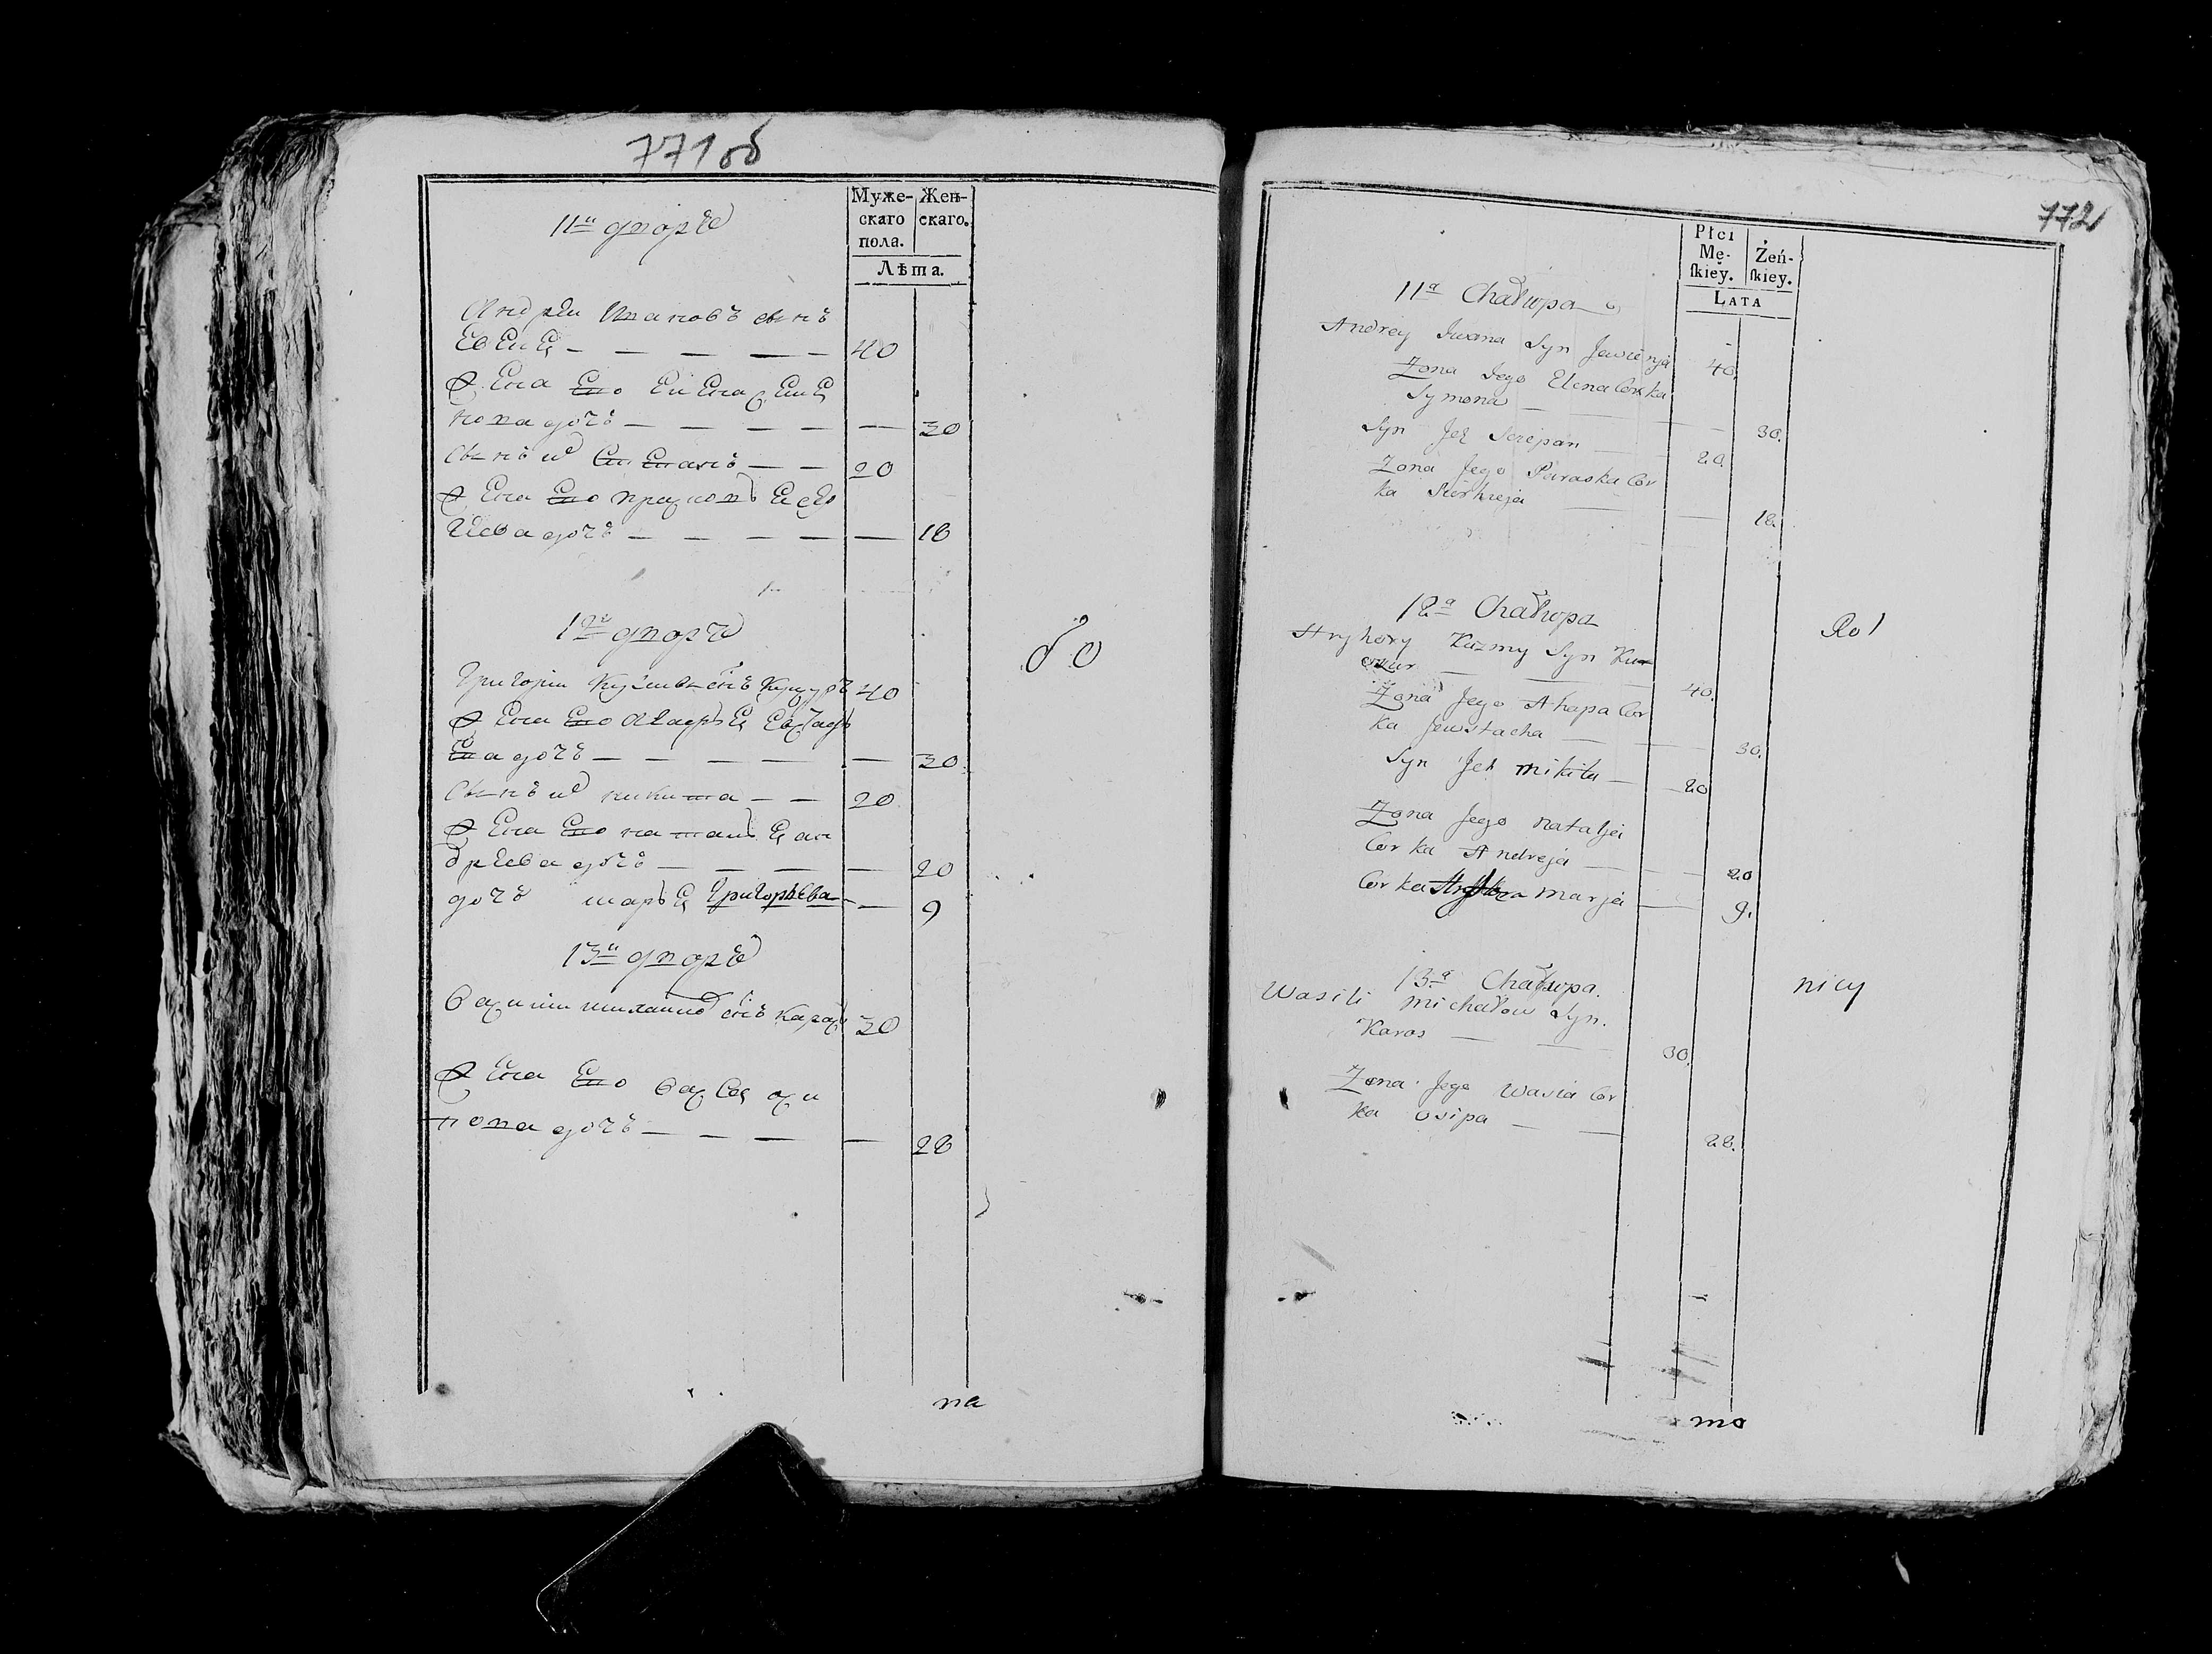 771об
Муже-
скаго
пола.
Жен-
скаго.
Лѣта.
11й дворъ
Андрѣй Ивановъ сынъ
40
Жена Его Елена Семе
нова дочь — — — — — 30
Сынъ их Степанъ — — 20
Жена Его
дочь — — — — — 18
12й дворъ
Григорій 40
Жена Его Агафья
дочь — — — — — 30
Сынъ их никита — — 20
Жена Его наталья ан
дреева дочь — — — — 20
дочь марья Григорьева — — 9
13й дворъ
Василій михайлов снъ Карась 30
Жена Его Вася оси
пова дочь — — — — — 28
до
на
772
Płci
Mę-
ſkiey.
Żeń-
ſkiey.
LATA
11a Chałupa
Andrey Iwana Syn 40.
Zona Jego Elena Corka
Symona — — — 30.
Syn Jch Sciepan — 20.
Zona Jego Paraska Cor
ka — — 18.
12a Chałupa
Hryhory Kuzmy Syn Ku-
czur — — 40.
Zona Jego Ahapa Cor
ka Jewstacha — — 30.
Syn Jch mikita — 20
Zona Jego natalja
Corka Andreja — — 20
Corka marja — 9.
13a Chałupa.
Wasili michałow Syn.
Karas — — 30.
Zona Jego Wasia Cor
ka osipa — — 28.
Rol
nicy
mo